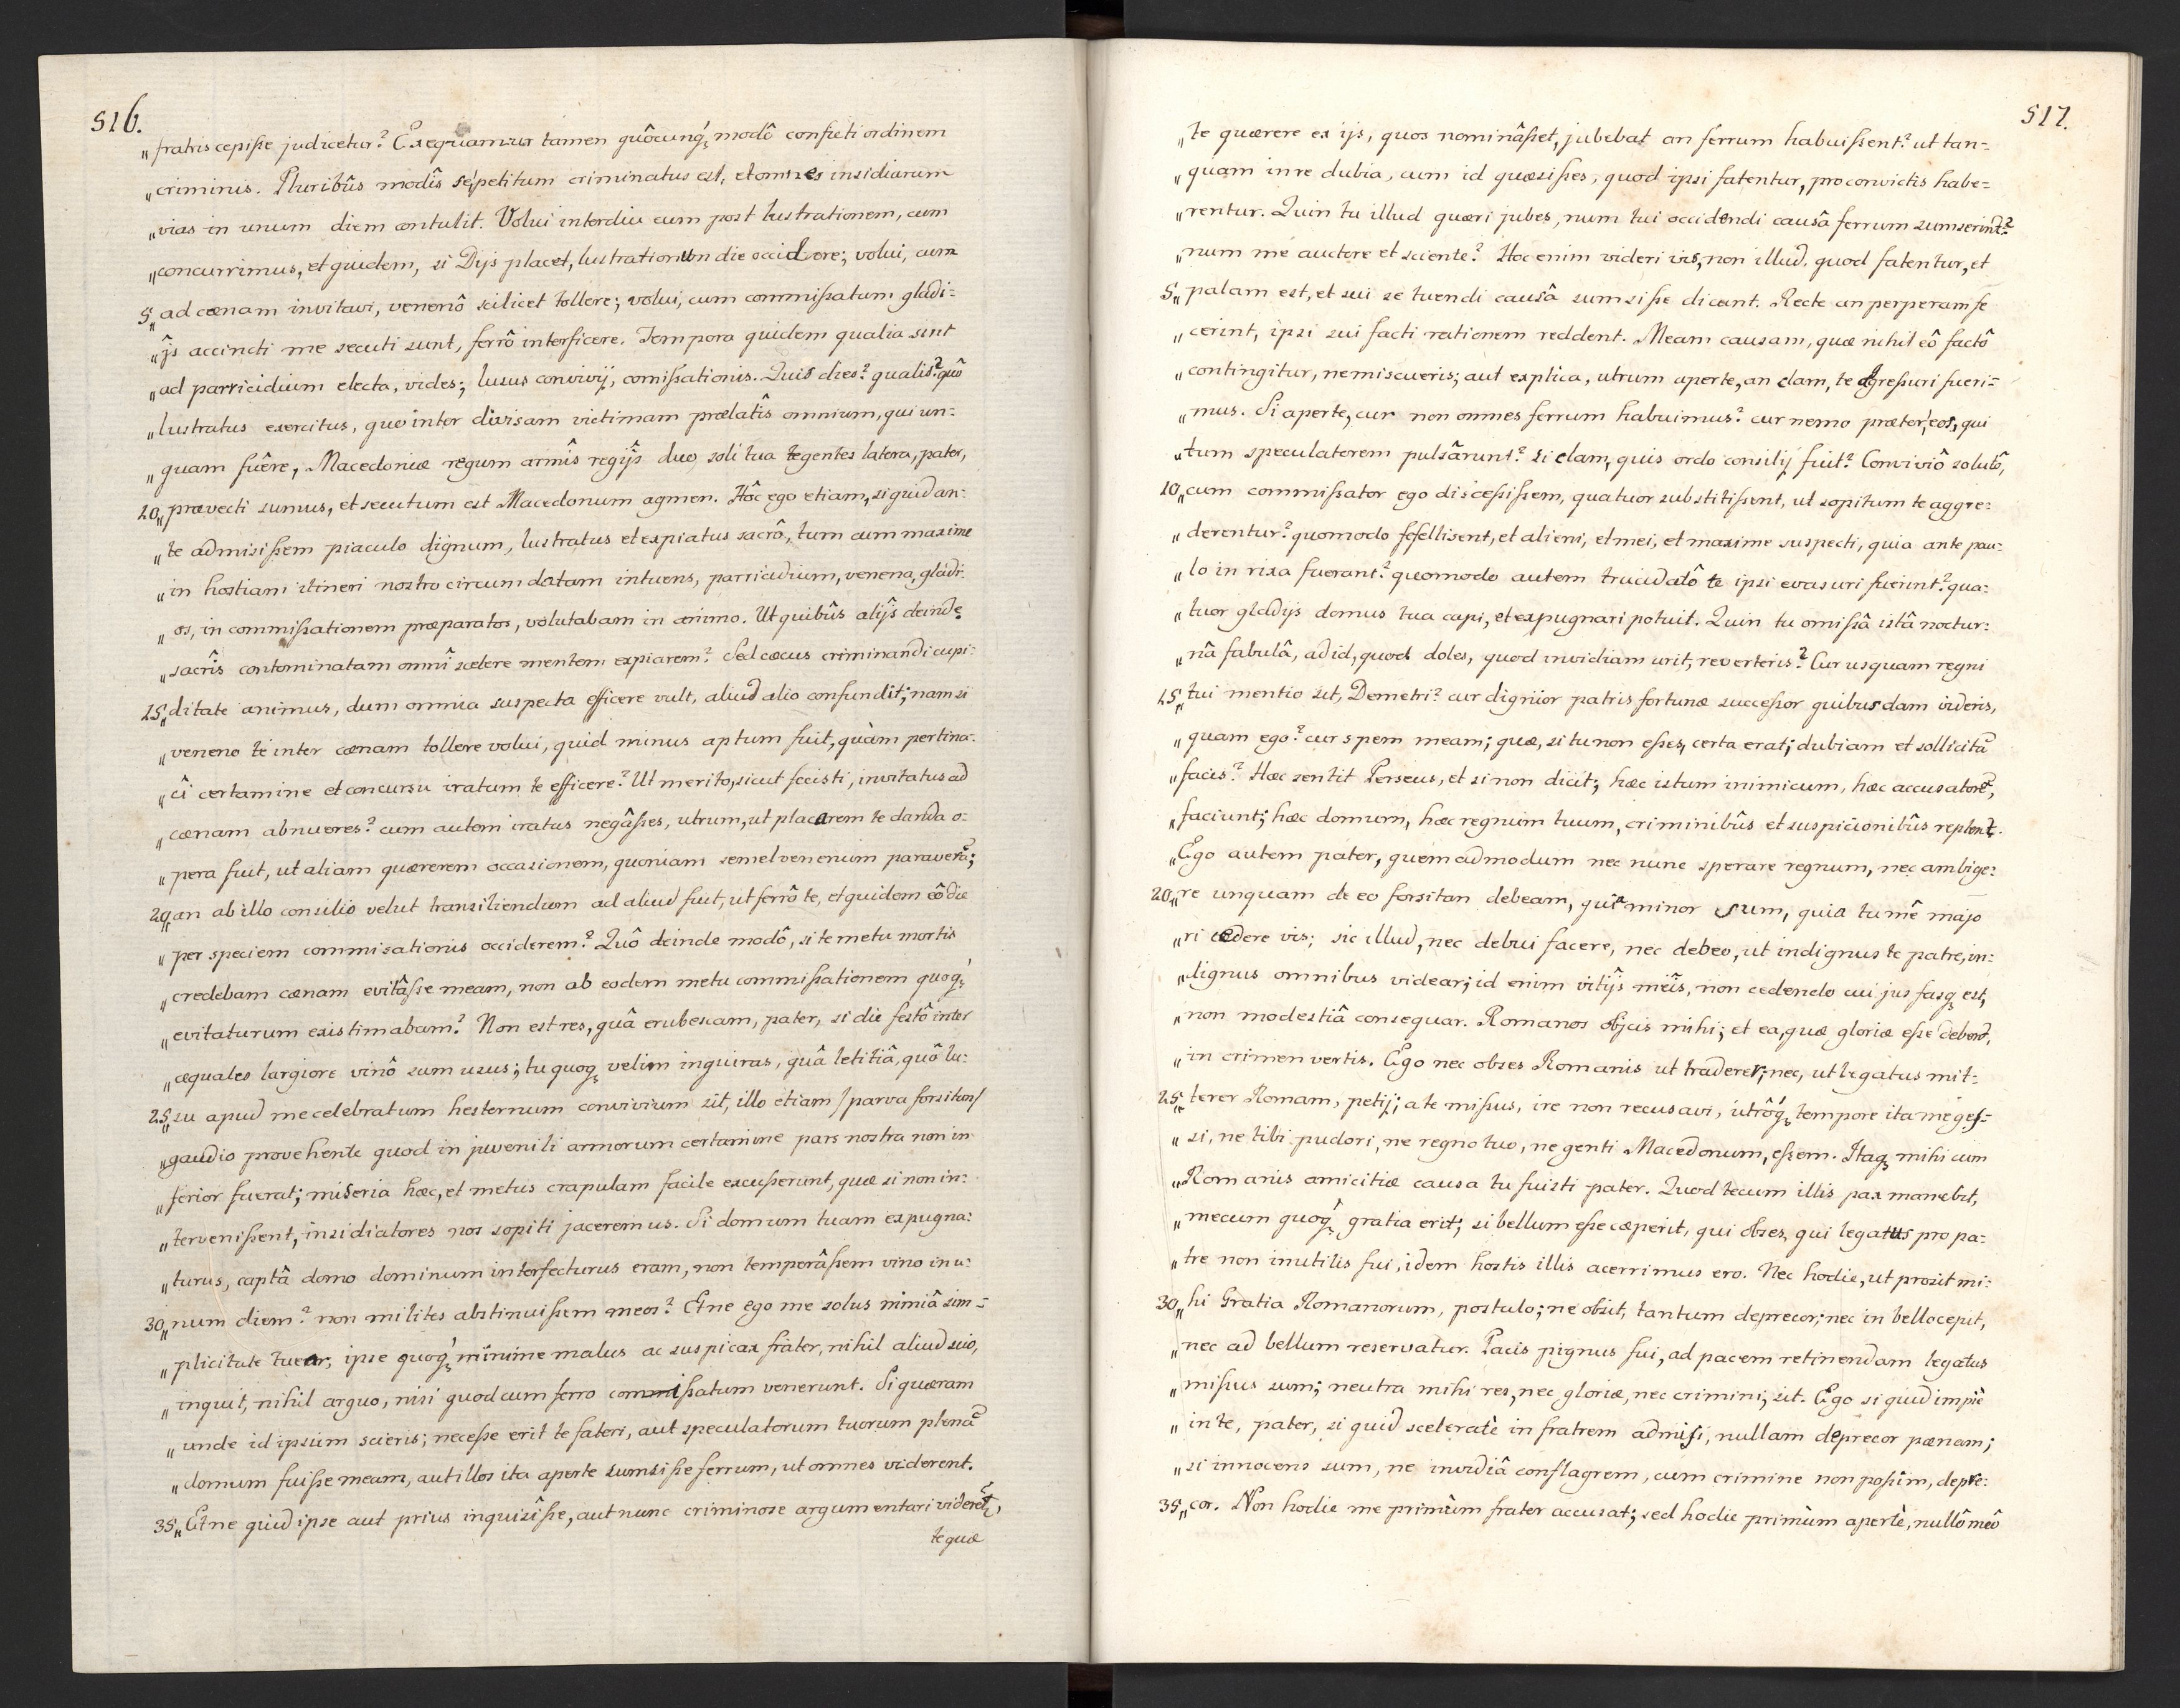 516.
„fratris cepiße judicetur? Exequamur tamen quôcunq́ꝫ modô conficti ordinem
„criminis. Pluribûs modîs se petitum criminatus est, et omnes insidiarum
„vias in unum diem contulit. Volui interdiu eum post lustrationem, cum
„concurrimus, et quidem, si Dijs placet, lustrationum die occidere; volui, cum
5„ad cœnam invitavi, venenô scilicet tollere; volui, cum commißatum gladi-
„îjs accincti me secuti sunt, ferrô interficere. Tempora quidem qualia sint
„ad parricidium electa, vides; lusus convivij, comißationis. Quis dies? qualis? quô
„lustratus exercitus, quo inter divisam victimam prælatîs omnium, qui un-
„quam fuêre, Macedoniæ regum armîs regîjs duo soli tua tegentes latera, pater,
10„prævecti sumus, et secutum est Macedonum agmen. Hôc ego etiam, si quid an-
„te admisißem piaculo dignum, lustratus et expiatus sacrô, tum cum maxime
„in hostiam itineri nostro circumdatam intuens, parricidium, venena, gladi-
„os, in commißationem præparatos, volutabam in animo. Ut quibûs alîjs deinde
„sacrîs contominatam omnî scelere mentem expiarem? Sed cæcus criminandi cupi-
15„ditate animus, dum omnia suspecta efficere vult, aliud alio confundit; nam si
„veneno te inter cœnam tollere volui, quid minus aptum fuit, quàm pertina-
„cî certamine et concursu iratum te efficere? Ut merito, sicut fecisti, invitatus ad
„cœnam abnueres? cum autem iratus negâßes, utrum, ut placarem te danda o-
„pera fuit, ut aliam quærerem occasionem, quoniam semel venenum paraverā;
20„an ab illo consilio velut transiliendum ad aliud fuit, ut ferrô te, et quidem eô die
„per speciem commisationis occiderem? Quô deinde modô, si te metu mortis
„credebam cœnam evitâße meam, non ab eodem metu commißationem quoq́ꝫ
„evitaturum existimabam? Non est res, quâ erubescam, pater, si die festô inter
„æquales largiore vinô sum usus; tu quoqꝫ velim inquiras, quâ letitiâ, quô lu-
25„su apud me celebratum hesternum convivium sit, illo etiam / parva forsitan /
„gaudio provehente quod in juvenili armorum certamine pars nostra non in-
„ferior fuerat; miseria hæc, et metus crapulam facile excußerunt, quæ si non in-
„tervenißent, insidiatores nos sopiti jaceremus. Si domum tuam expugna-
„turus, captâ domo dominum interfecturus eram, non temperâßem vino in u-
30„num diem? non milites abstinuißem meos? Et ne ego me solus nimiâ sim-
„plicitate tuear, ipse quoq́ꝫ minime malus ac suspicax frater, nihil aliud scio,
„inquit, nihil arguo, nisi quod cum ferro commißatum venerunt. Si quæram
„unde id ipsum scieris; neceße erit te fateri, aut speculatorum tuorum plenā
„domum fuiße meam, aut illos ita aperte sumsiße ferrum, ut omnes viderent.
35„Et ne quid ipse aut prius inquisîße, aut nunc criminose argumentari videretꝫ,
te quæ
517.
„te quærere ex ijs, quos nominâßet, jubebat an ferrum habuißent? ut tan-
„quam in re dubia, cum id quæsißes, quod ipsi fatentur, pro convictis habe-
„rentur. Quin tu illud quæri jubes, num tui occidendi causâ ferrum sumserint?
„num me auctore et sciente? Hoc enim videri vis, non illud, quod fatentur, et
5„palam est, et sui se tuendi causâ sumsiße dicant. Recte an perperam fe
„cerint, ipsi sui facti rationem reddent. Meam causam, quæ nihil eô factô
„contingitur, ne miscueris; aut explica, utrum aperte, an clam, te agreßuri fueri-
„mus. Si aperte, cur non omnes ferrum habuimus? cur nemo præter eos, qui
„tum speculatorem pulsârunt? si clam, quis ordo consilij fuit? Conviviô solutô,
10„cum commißator ego discessißem, quatuor substitißent, ut sopitum te aggre-
„derentur? quomodo fefellisent, et alieni, et mei, et maxime suspecti, quia ante pau-
„lo in rixa fuerant? quomodo autem trucidatô te ipsi evasuri fuerint? qua-
„tuor gladijs domus tua capi, et expugnari potuit. Quin tu omißâ istâ noctur-
„nâ fabulâ, ad id, quod doles, quod invidiam urit, reverteris? Cur usquam regni
15„tui mentio sit, Demetri? cur dignior patris fortunæ succeßor quibusdam videris,
„quam ego? cur spem meam; quæ, si tu non eßes, certa erat; dubiam et sollicitā
„facis? Hæc sentit Perseus, et si non dicit; hæc istum inimicum, hæc accusatorē,
„faciunt; hæc domum, hæc regnum tuum, criminibûs et suspicionibûs replent.
„Ego autem pater, quemadmodum nec nunc sperare regnum, nec ambige-
20„re unquam de eo forsitan debeam, quia minor sum, quia tu mê majo
„ri cedere vis; sic illud, nec debui facere, nec debeo, ut indignus te patre, in-
„dignus omnibus videar; id enim vitîjs meîs, non cedendo cui jus fasqꝫ est,
„non modestiâ consequar. Romanos objcis mihi; et ea, quæ gloriæ eße debent,
„in crimen vertis. Ego nec obses Romanis ut traderer; nec, ut legatus mit-
25„terer Romam, petij; a te mißus, ire non recusavi, utrôq́ꝫ tempore ita me geſ-
„si, ne tibi pudori, ne regno tuo, ne genti Macedonum, eßem. Itaqꝫ mihi cum
„Romanis amicitiæ causa tu fuisti pater. Quod tecum illis pax manebit,
„mecum quoq́ꝫ gratia erit; si bellum eße cæperit, qui obses, qui legatus pro pa-
„tre non inutilis fui, idem hostis illis acerrimus ero. Nec hodie, ut prosit mi-
30„hi Gratia Romanorum, postulo; ne obsit, tantum deprecor; nec in bello cepit,
„nec ad bellum reservatur. Pacis pignus fui, ad pacem retinendam legatus
„mißus sum; neutra mihi res, nec gloriæ, nec crimini, sit. Ego si quid impiè
„in te, pater, si quid sceleratè in fratrem admisi, nullam deprecor pænam;
„si innocens sum, ne invidiâ conflagrem, cum crimine non poßim, depre-
35„cor. Non hodie me primùm frater accusat; sed hodie primùm apertè, nullô meô